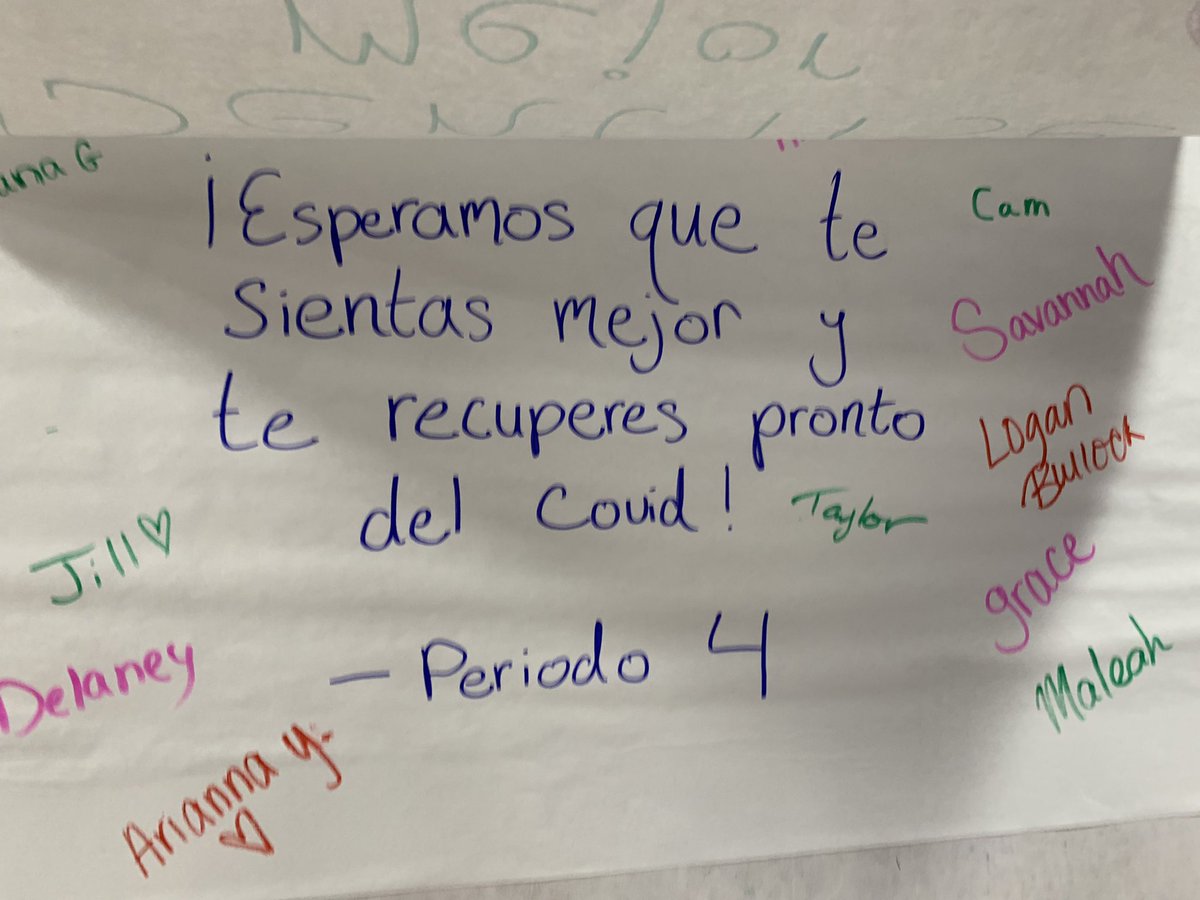 ¡Esperamos que te
Cam
Sientas mejor y
Savannah
te recuperes pronto
Logan
Bullock
del Covid!
Taylor
Jill
grace
- Periodo 4
Delaney
Maleah
Arianna y.